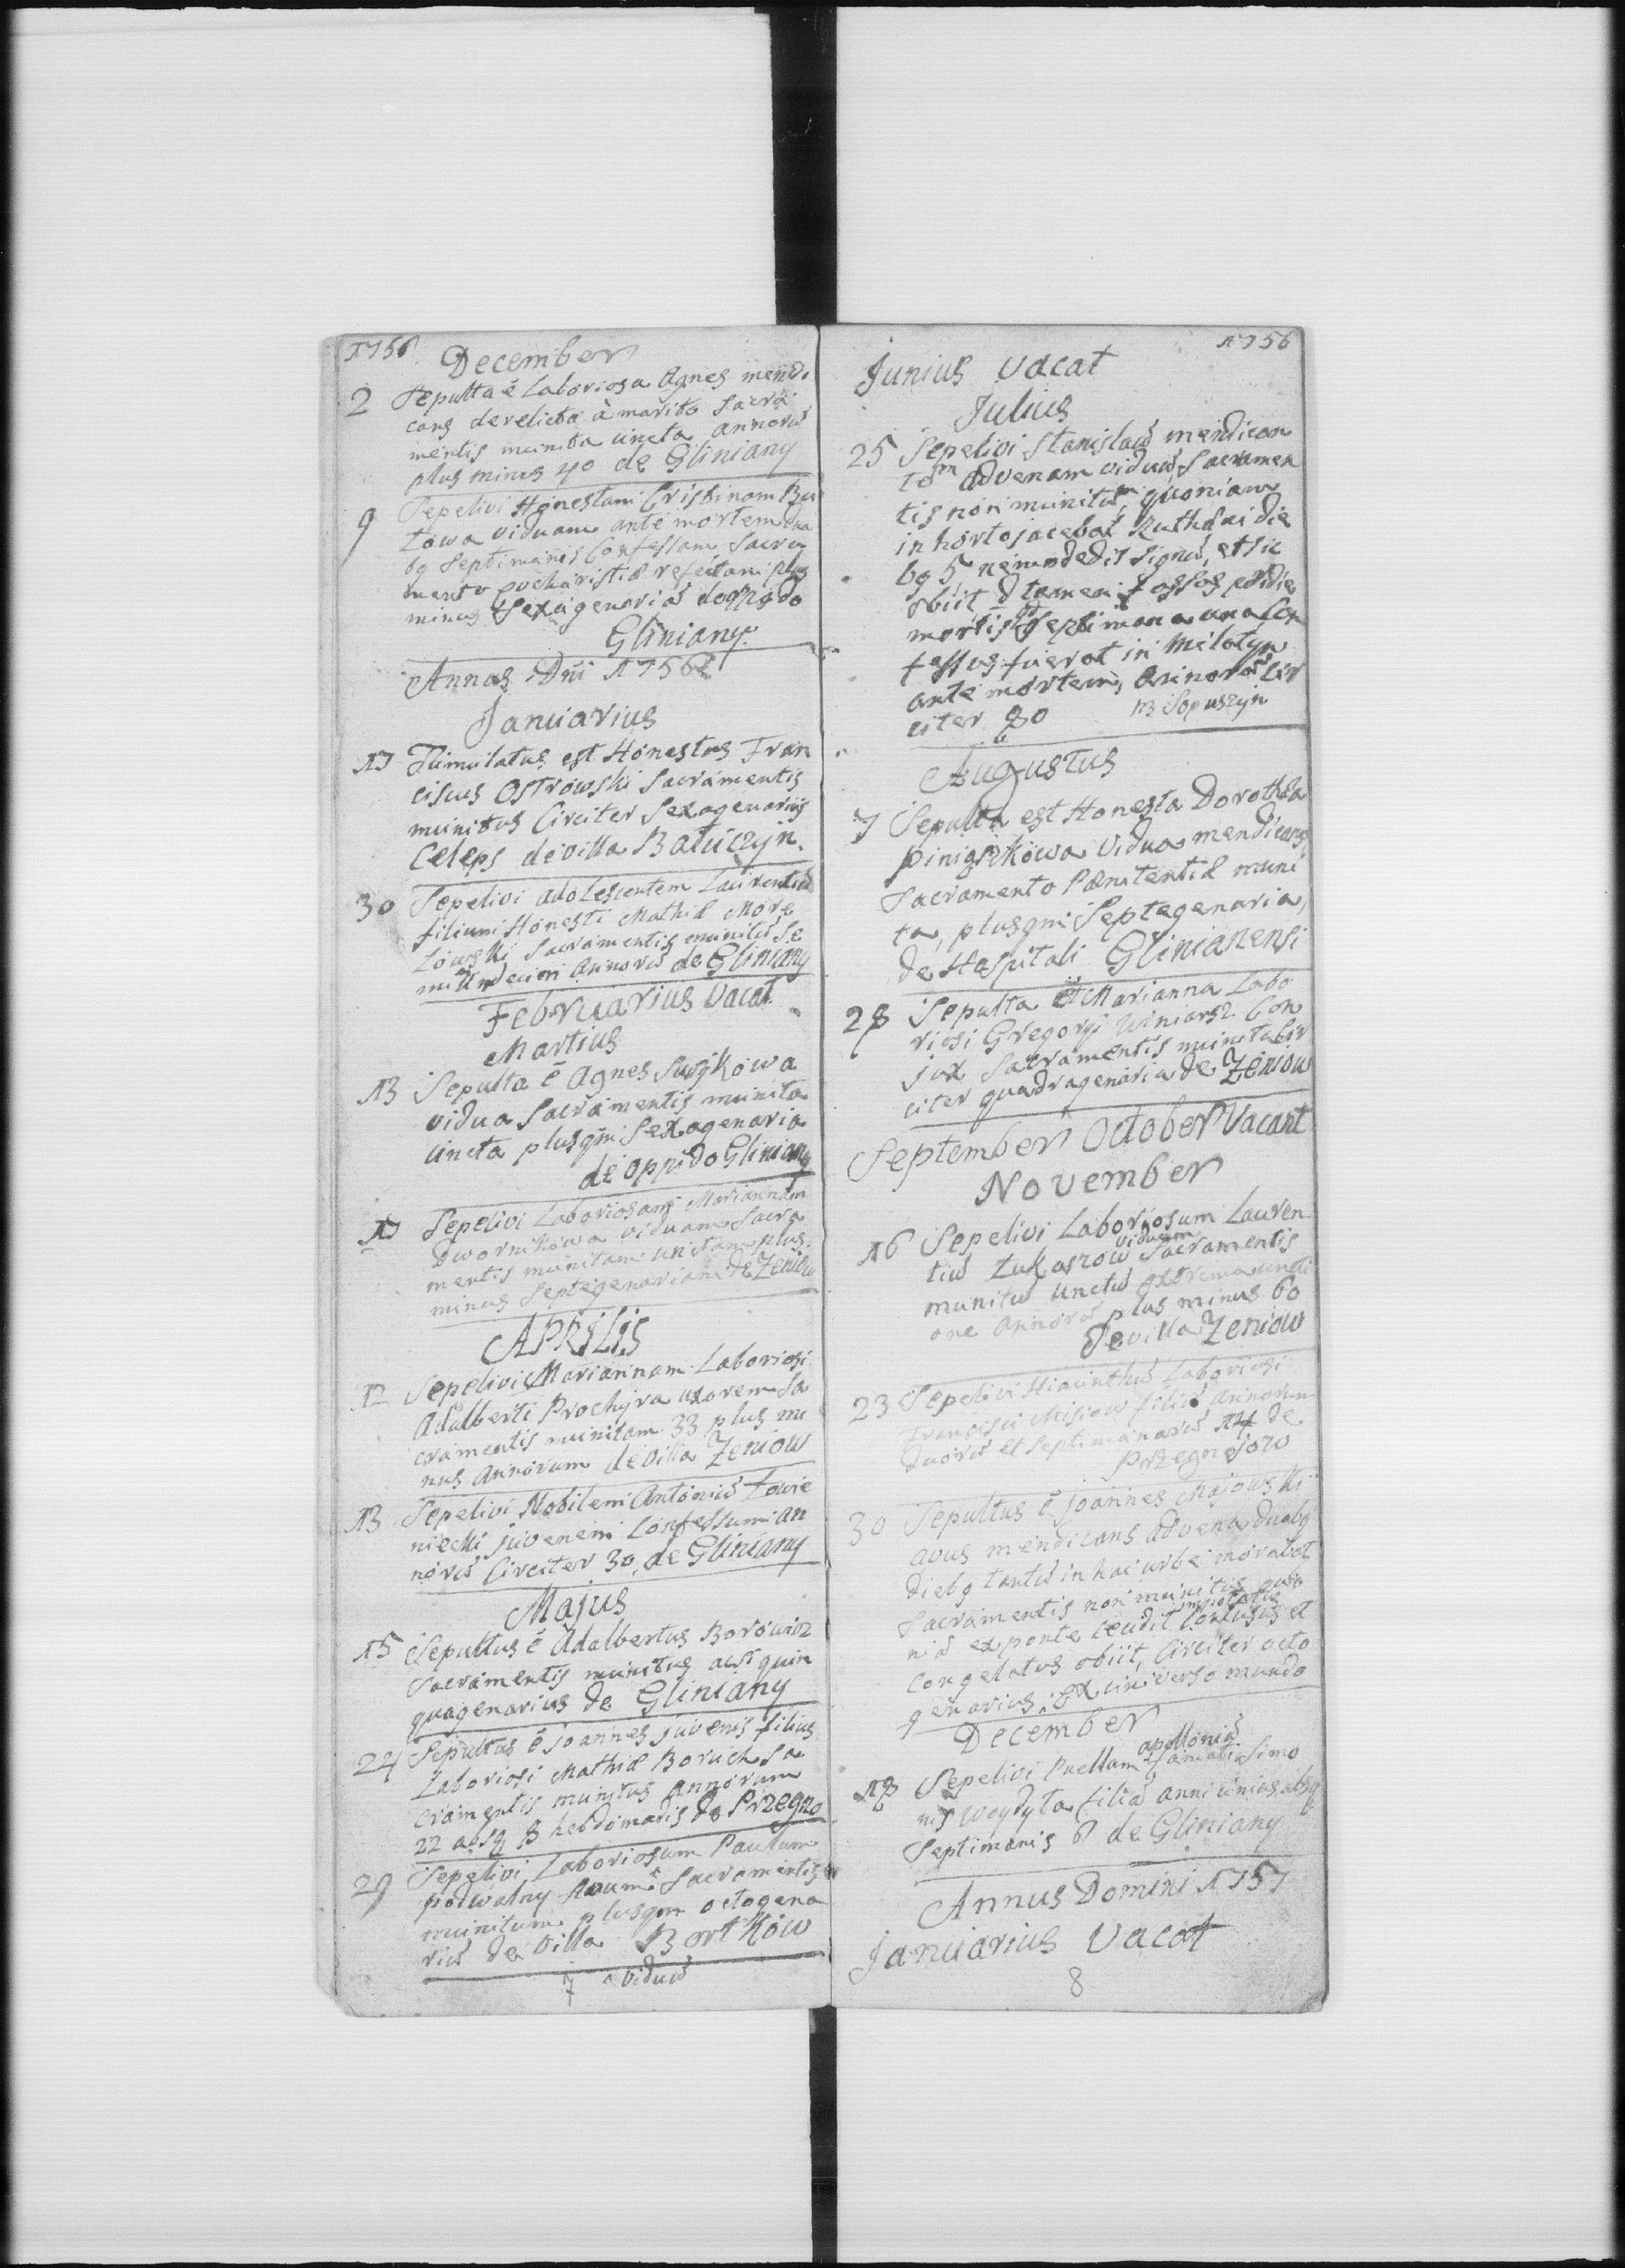 1756
December
2 Sepulta ē Laboriosa Agnes mendi
cans derelicta à marito Sacra
mentis munita uncta annorū
plus minus 40 de Gliniany
9 Sepelivi Honestam Cristinam Bu
towa viduam ante mortem dua
bq Septimanis Confessam Sacra
mento eucharistiæ refectam plus
minus Sexagenariā de oppido
Gliniany
Annus Dni 1756
Januarius
17 Tumulatus est Honestus Fran
ciscus Ostrowski Sacramentis
munitus Circiter Sexagenariūs
Celeps de villa Batuczyn.
30 Sepelivi adolescentem Laurentiū
filium Honesti Mathiæ More
lowski Sacramentis munitū Se
mi undecim Annorū de Gliniany
Februarius Vacat
Martius
13 Sepulta ē Agnes
vidua Sacramentis munita
uncta plusqmi Sexagenaria
de oppido Gliniany
17 Sepelivi Laboriosam Mariannam
Dwornikowa viduam Sacra
mentis munitam unctam plus
minus Septegenariam de Zeniow
APRILIS
12 Sepelivi Mariannam Laboriosi
Adalberti Prochyra uxorem Sa
cramentis munitam 33 plus mi
nus Annorum de villa Zeniow
13 Sepelivi Nobilem Antoniū Łowie
niecki juvenem Confessum an
norū Circiter 30 de Gliniany
Majus
15 Sepultus ē Adalbertus Borowicz
Sacramentis munitus acsi quin
quagenarius de Gliniany
24 Sepultus ē Joannes juvenis filius
Laboriosi Mathiæ Boruch Sa
cramentis munitus Annorum
22 absq 8 hebdomadis de Przegno
29 Sepelivi Laboriosum Paulum
powalny Avum Sacramentis
munitum plusqm octogena
riū de villa Bortków
7 viduū
1756
Junius Vacat
Julius
25 Sepelivi Stanislaū mendican
tem advenam viduū Sacramen
tis non munitūm, quoniam
in horto jacebat Rutheni die
bq 5 nemo dedit signū, et sic
obiit tamen
mortis Septimana una Con
fessus fuerat in Milatyn
ante mortem, Annorū Cir
citer 80 Sopuszyn
Augustus
7 Sepulta est Honesta Dorothea
Vidua mendicans,
Sacramento Pænitentiæ muni
ta, plusqmi Septegenaria,
de Hospitali Glinianensi
28 Sepulta est Marianna Labo
riosi Gregorÿ Winiarsz Con
jux Sacramentis munita Cir
citer quadragenaria de Zeniow
September October Vacant
November
16 Sepelivi Laboriosum Lauren
tiū Łukaszow viduum Sacramentis
munitū unctū extrema uncti
one Annorū plus minus 60
de villa Zeniow
23 Sepelivi Hiacinthū Laboriosi
Francisci Misiow filiū Annorum
duorū et Septimanarū 14 de
Przegnojow
30 Sepultus ē Joannes Majowski
avus mendicans advena duabq
diebq tantū in hac urbe morabat
Sacramentis non munitus quo
niā ex ponte cecidit Contusus et
congelatus obiit, Circiter octo
genarius, Ex universo mundo
December
18 Sepelivi Puellam apolloniā famati Simo
nis Woydyła filiā anni unius absq
Septimanis 6 de Gliniany
Annus Domini 1757
Januarius Vacat
8